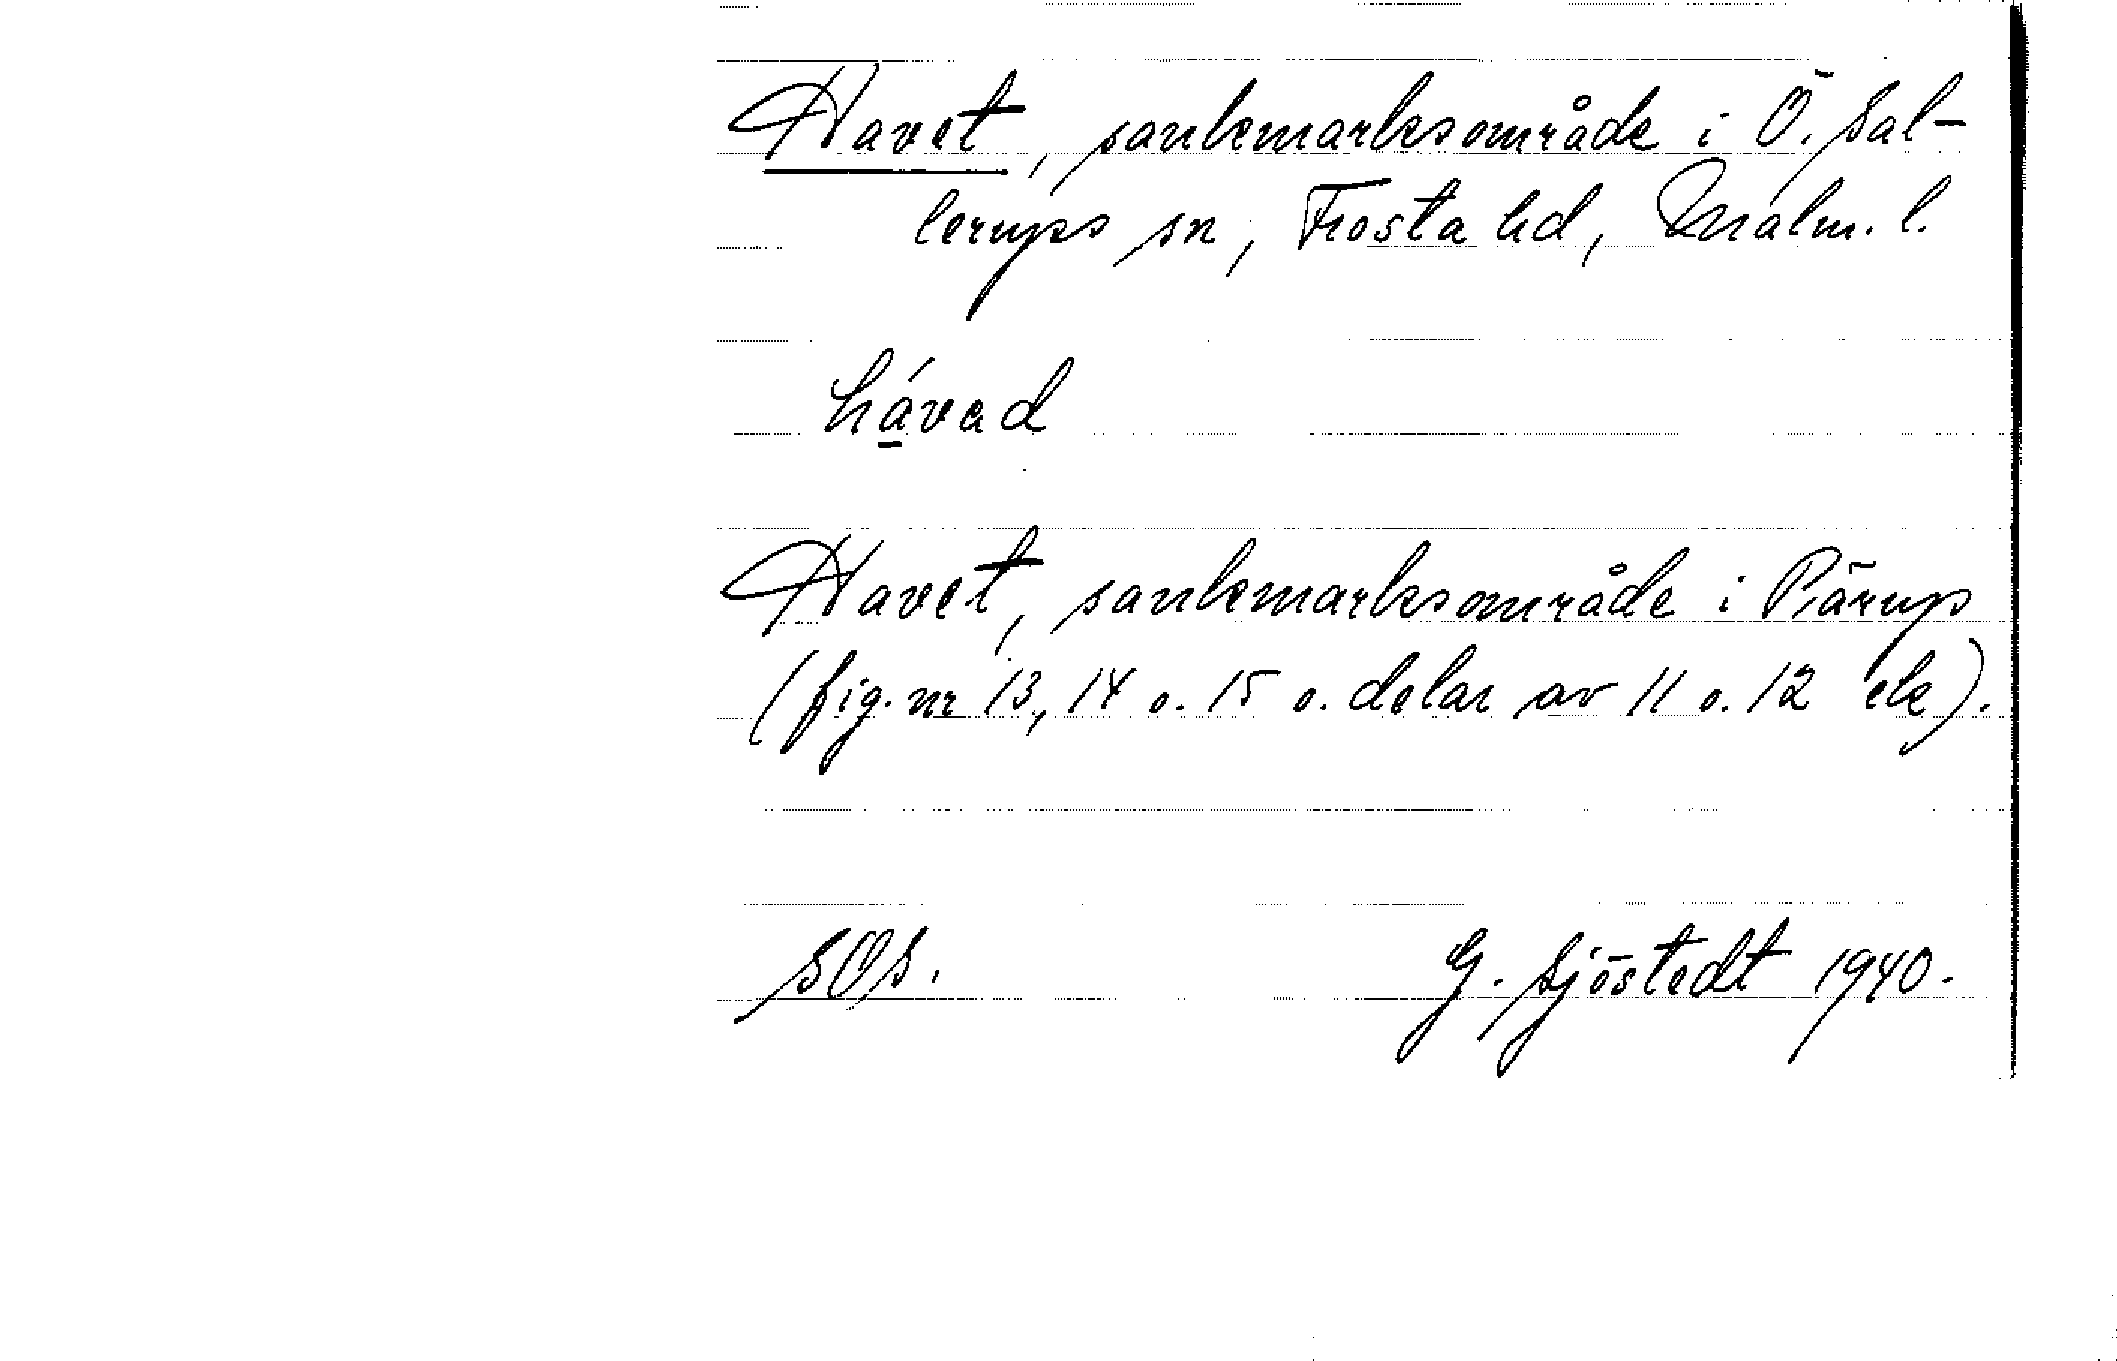 Havet, sankmarksområde i Ö. Sal-
lerups sn, Frosta hd, Malm. l.
hávad
Havet, sankmarksområde i Pärup
(fig. nr 13, 14 o. 15 o. delar av 11 o. 12 ek).
SOS.
G. Sjöstedt 1940.